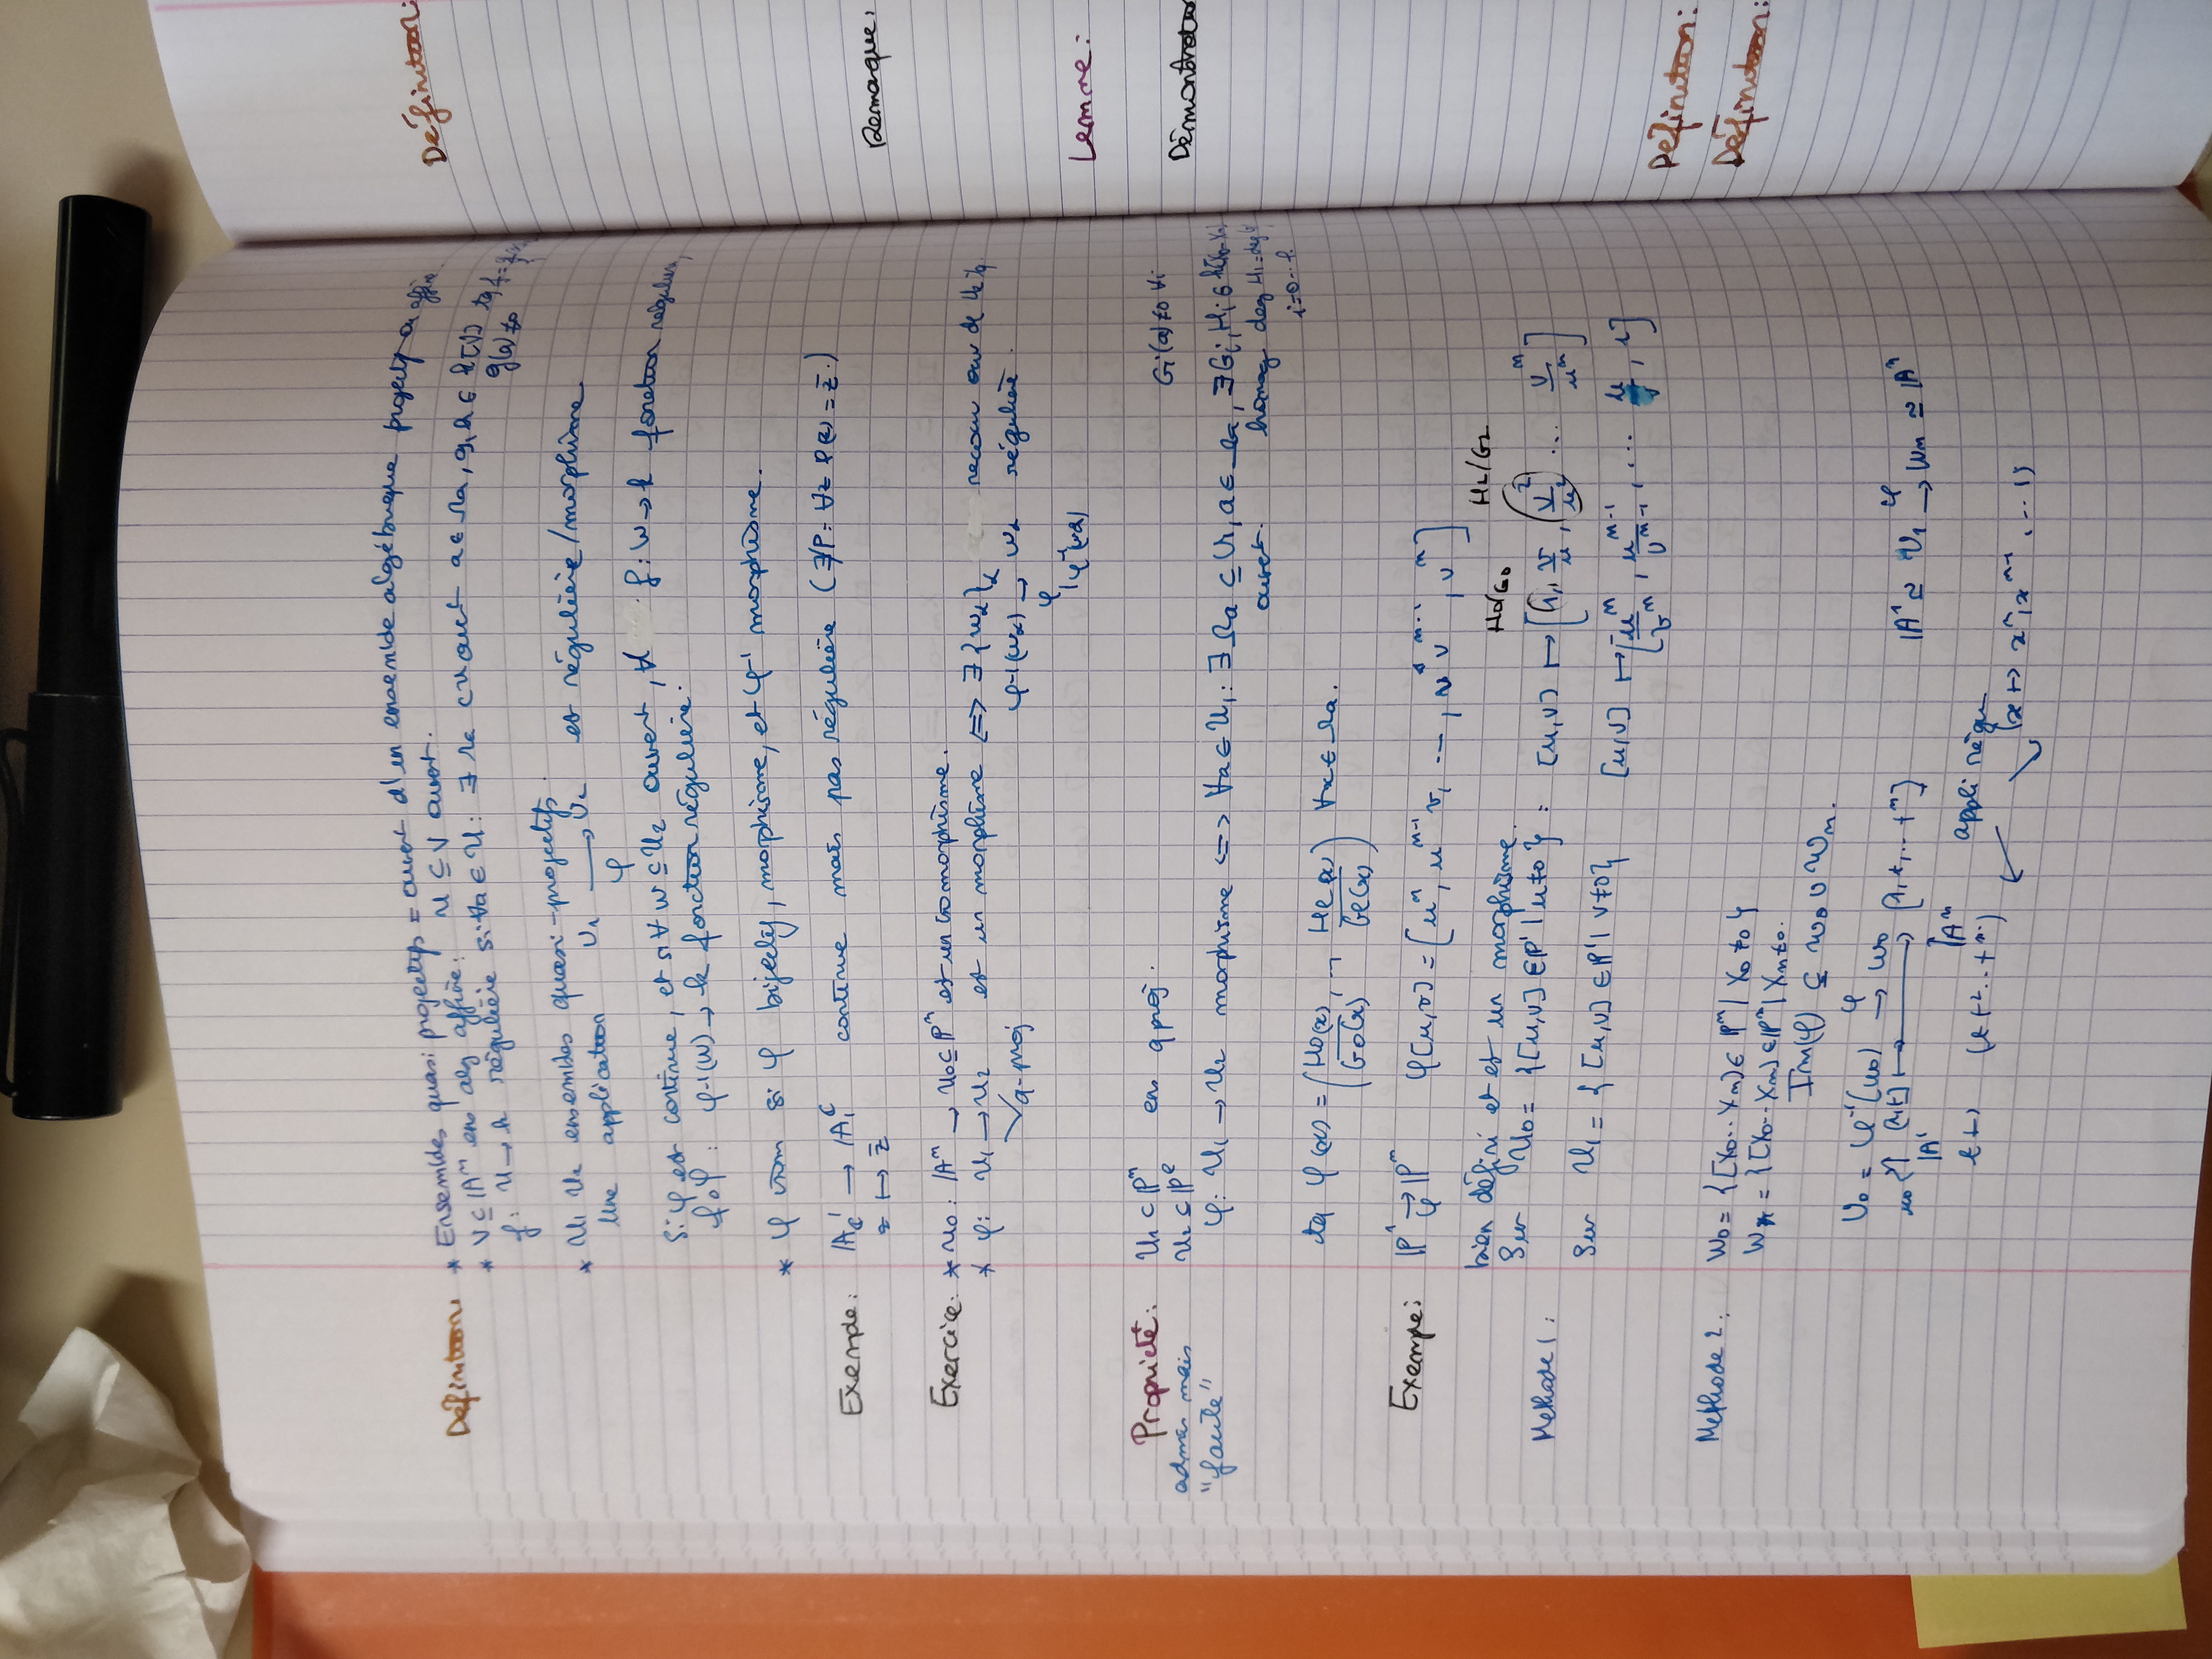 Définition: * Ensembles quasi projectifs = ouvert d'un ensemble algébrique projectif ou affine.
* V ⊆ 𝔸ⁿ ens alg affine. U ⊆ V ouvert.
f: U → k régulière si ∀a ∈ U: ∃ Ωa ⊂ U ouvert a ∈ Ωa, g, h ∈ k[V] tq f =
g(a) ≠ 0
* U₁ U₂ ensembles quasi-projectifs.
Une application U₁ → U₂ est régulière/morphisme
φ
Si φ est continue, et si ∀ W ⊆ U₂ ouvert, ∀ f: W → k fonction régulière,
f∘φ: φ⁻¹(W) → k fonction régulière.
* φ isom si φ bijectif, morphisme, et φ⁻¹ morphisme.
Exemple: 𝔸¹_ℂ → 𝔸₁^ℂ continue mais pas régulière (∄P: ∀z P(z) = z̄.)
z ↦ z̄
Exercice: * u₀: 𝔸ⁿ → U₀ ⊆ ℙⁿ est un isomorphisme.
* φ: U₁ → U₂ est un morphisme ⟺ ∃ {Wα}α recouv ouv de U₂ tq
q-proj φ⁻¹(Wα) → Wα régulière.
φ|φ⁻¹(Wα)
Propriété: U₁ ⊂ ℙⁿ ens q proj.
admis mais U₂ ⊆ ℙ^ℓ
"facile"
Gi(a) ≠ 0 ∀i
φ: U₁ → U₂ morphisme ⟺ ∀a ∈ U₁: ∃ Ωa ⊆ U₁, a ∈ Ωa, ∃Gi, Hi ∈ k[X₀...Xn]
ouvert. homog deg Hi = deg Gi
i=0...ℓ
tq φ(x) = (H₀(x)/G₀(x), ..., Hℓ(x)/Gℓ(x)) ∀x ∈ Ωa.
Exemple: ℙ¹ →φ ℙⁿ φ[u,v] = [uⁿ, uⁿ⁻¹v, ..., u vⁿ⁻¹, vⁿ]
bien défini et est un morphisme.
H₀/G₀ H₂/G₂
Methode 1: Sur U₀ = {[u,v] ∈ ℙ¹ | u ≠ 0}: [u,v] ↦ [1, v/u, v²/u² ... vⁿ/uⁿ]
Sur U₁ = {[u,v] ∈ ℙ¹ | v ≠ 0} [u,v] ↦ [uⁿ/vⁿ, uⁿ⁻¹/vⁿ⁻¹, ... u/v, 1]
Methode 2: W₀ = {[X₀...Xn] ∈ ℙⁿ | X₀ ≠ 0}
Wn = {[X₀...Xn] ∈ ℙⁿ | Xn ≠ 0.
Im(φ) ⊆ W₀ ∪ Wn.
U₀ = φ⁻¹(W₀) →φ W₀
u₀ [1,t] ↦ [1, t, ... tⁿ] 𝔸¹ ≃ U₁ →φ Wn ≃ 𝔸ⁿ
𝔸¹ 𝔸ⁿ
t ↦ (t t² ... tⁿ) appli régu
(x ↦ xⁿ, xⁿ⁻¹, ... 1)
Définition:
Remarque:
Lemme:
Définition:
Définition: